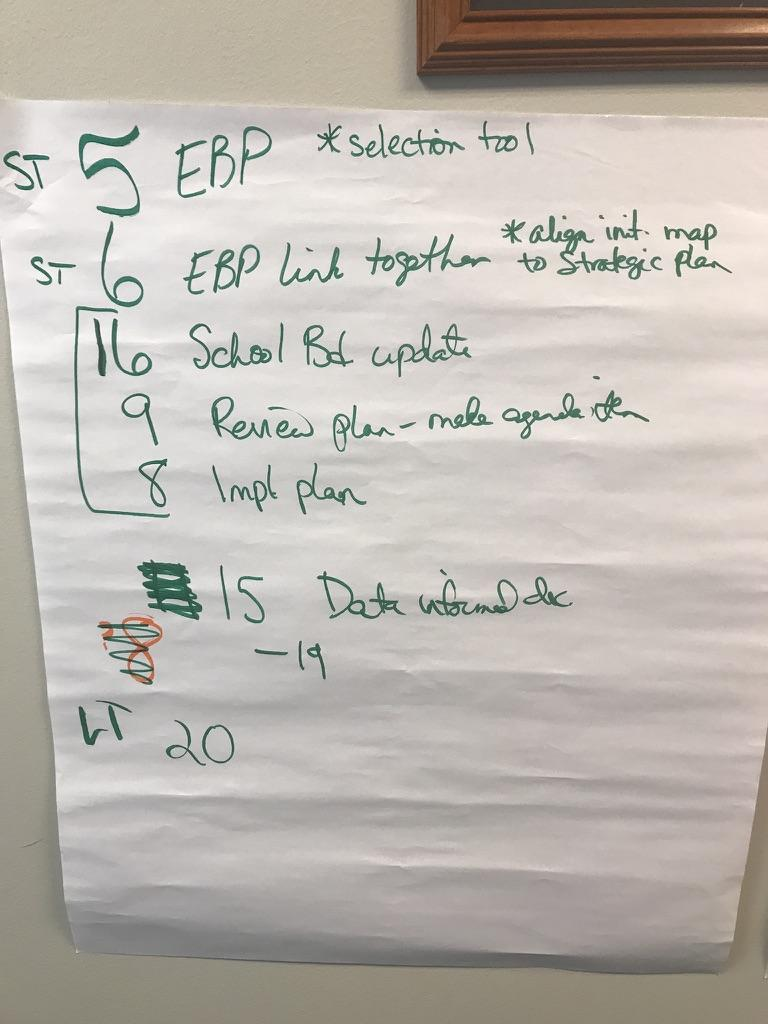 ST 5 EBP *selection tool
ST 6 EBP link together *align init. map
to Strategic plan
16 School Bd update
9 Review plan - make agenda item
8 Impl plan
15 Data informed dec
- 19
LT 20